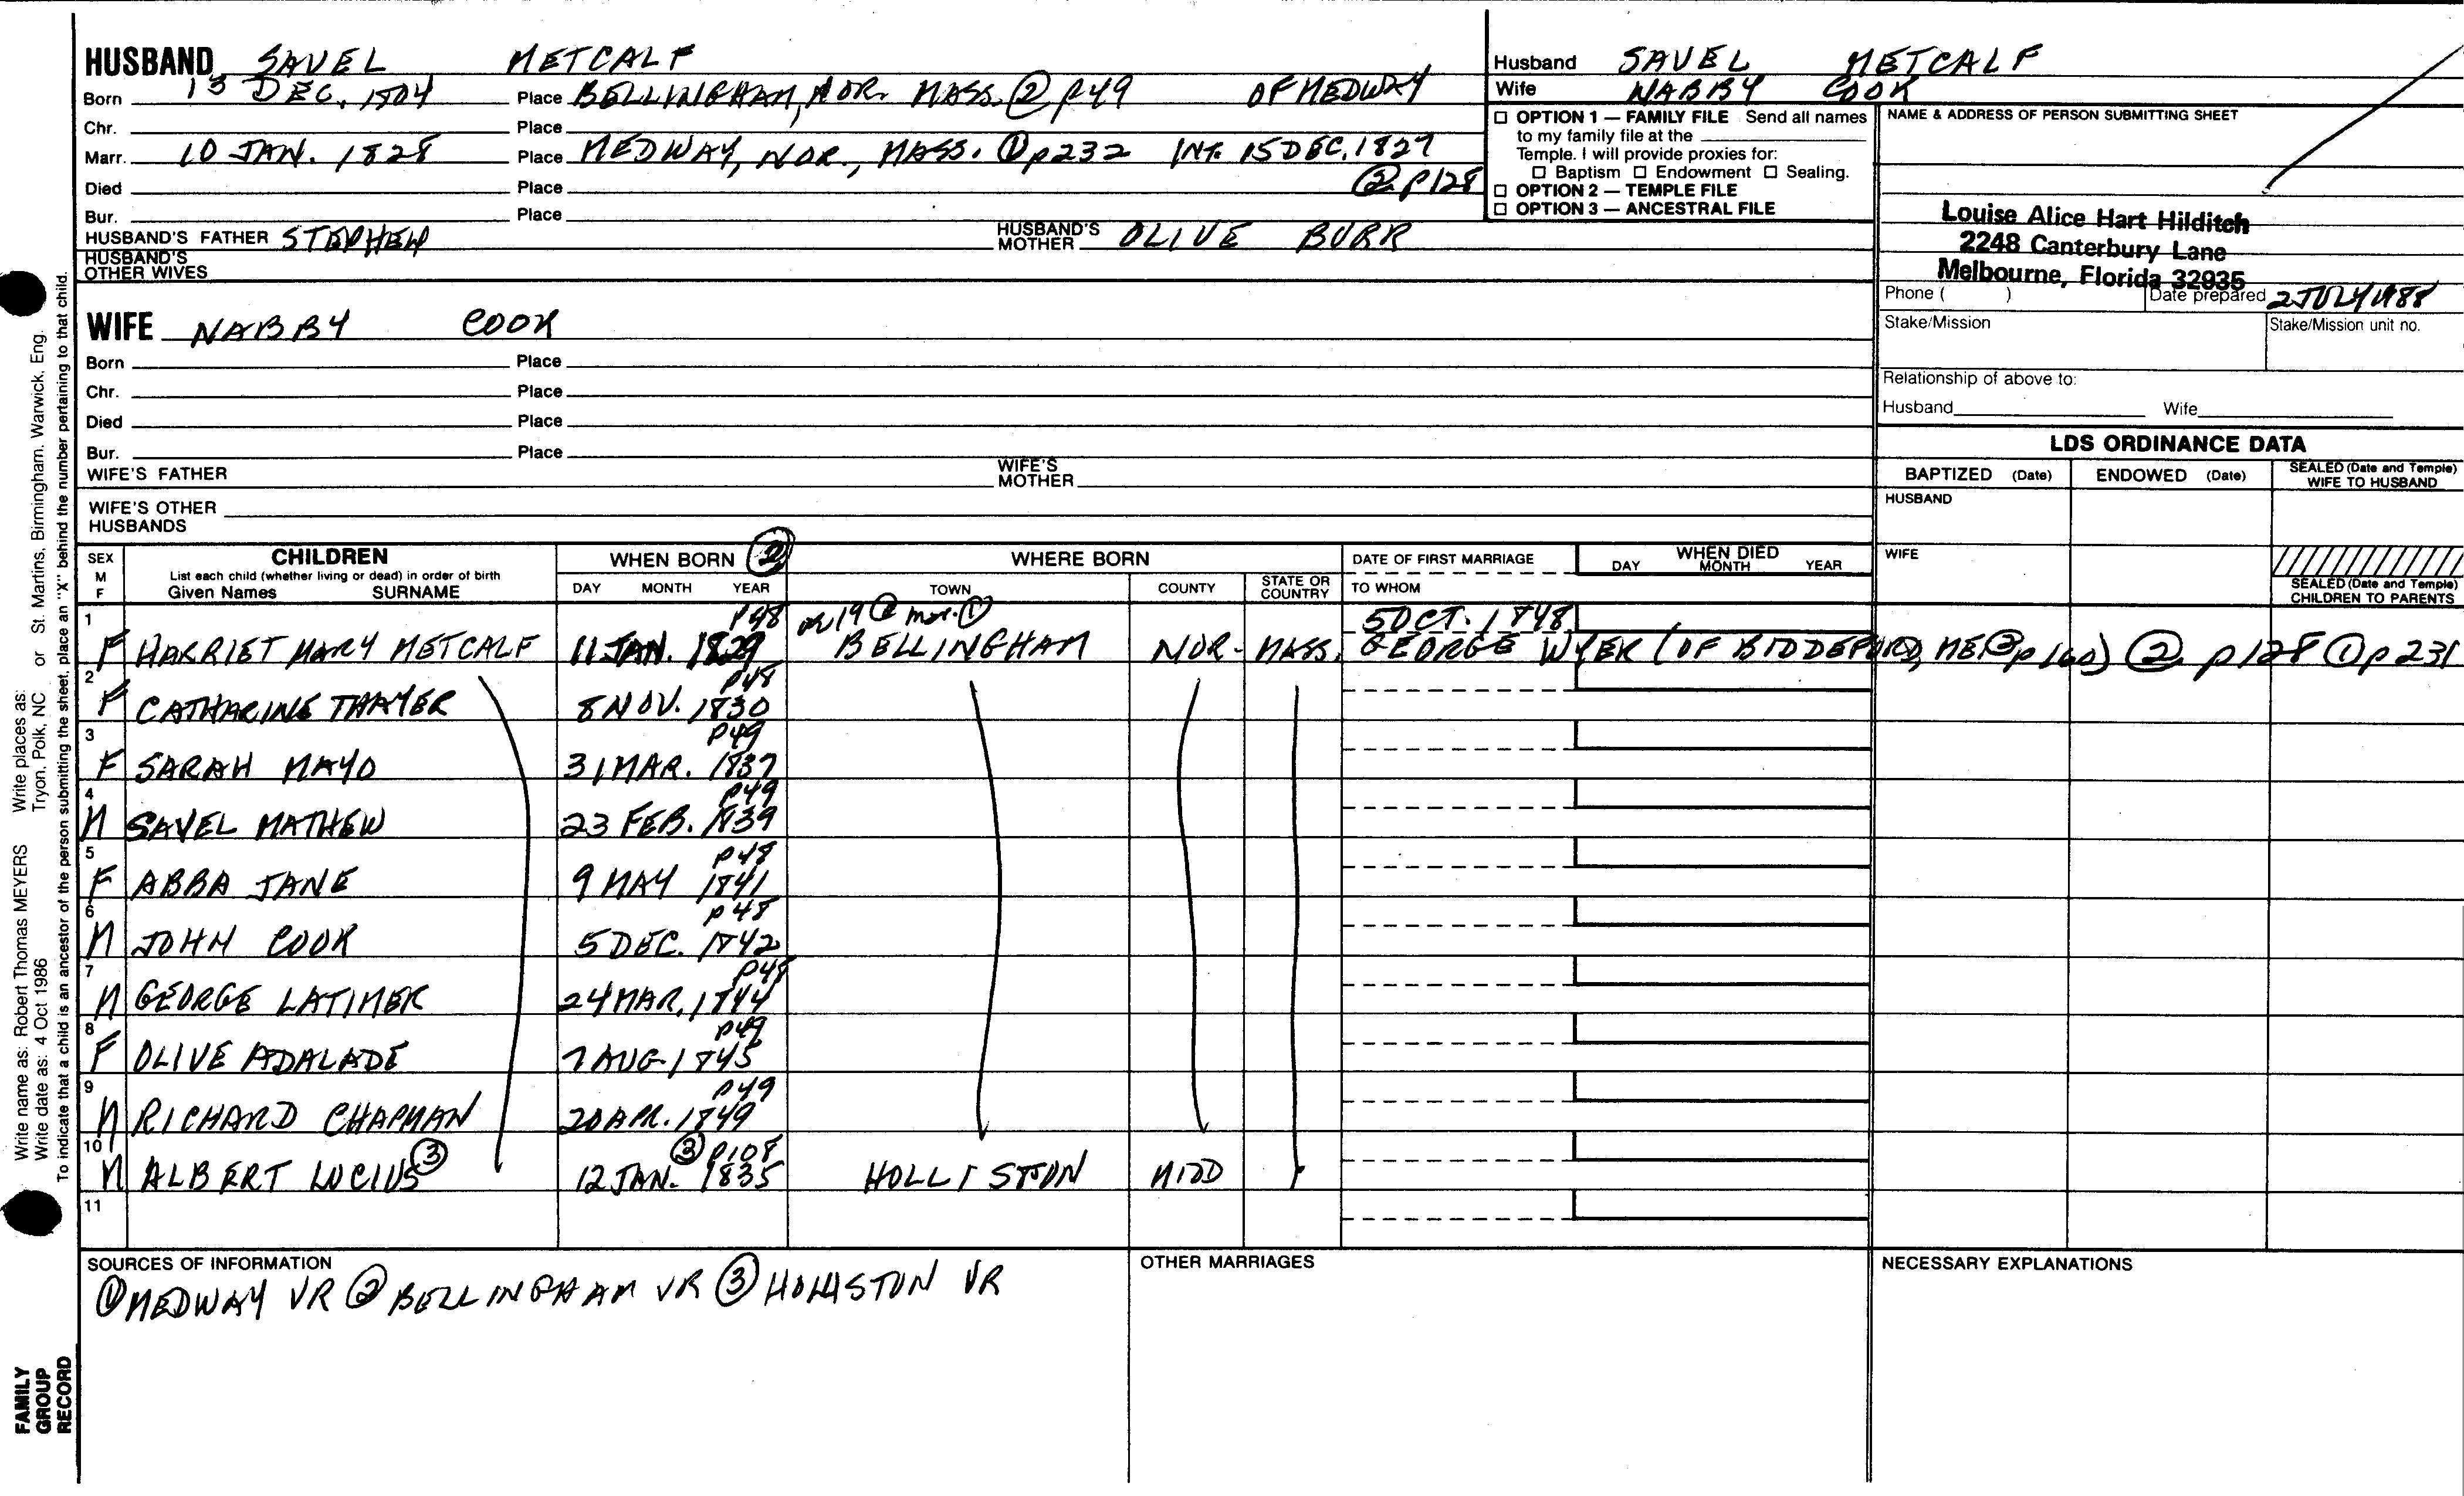 HUSBAND SAVEL METCALF
Born 13 DEC. 1804 Place BELLINGHAM, NOR. MASS. ② P49 OF MEDWAY
Chr. Place
Marr. 10 JAN. 1828 Place MEDWAY, NOR., MASS. ① p232 INT. 15 DEC. 1827
② P128
Died Place
Bur. Place
HUSBAND'S FATHER STEPHEN HUSBAND'S MOTHER OLIVE BURR
HUSBAND'S OTHER WIVES
Husband SAVEL METCALF
Wife NABBY COOK
☐ OPTION 1 — FAMILY FILE Send all names
to my family file at the
Temple. I will provide proxies for:
☐ Baptism ☐ Endowment ☐ Sealing.
☐ OPTION 2 — TEMPLE FILE
☐ OPTION 3 — ANCESTRAL FILE
NAME & ADDRESS OF PERSON SUBMITTING SHEET
Louise Alice Hart Hilditch
2248 Canterbury Lane
Melbourne, Florida 32935
Phone ( ) Date prepared 2 JULY 1988
Stake/Mission Stake/Mission unit no.
Relationship of above to:
Husband Wife
WIFE NABBY COOK
Born Place
Chr. Place
Died Place
Bur. Place
WIFE'S FATHER WIFE'S MOTHER
WIFE'S OTHER HUSBANDS
LDS ORDINANCE DATA
BAPTIZED (Date) ENDOWED (Date) SEALED (Date and Temple) WIFE TO HUSBAND
HUSBAND
WIFE
SEALED (Date and Temple) CHILDREN TO PARENTS
SEX M F CHILDREN WHEN BORN ② WHERE BORN DATE OF FIRST MARRIAGE WHEN DIED
List each child (whether living or dead) in order of birth
Given Names SURNAME DAY MONTH YEAR TOWN COUNTY STATE OR COUNTRY TO WHOM DAY MONTH YEAR
P48 19 ② mar. ① 5 OCT. 1848
1 F HARRIET MARY METCALF 11 JAN. 1829 BELLINGHAM NOR- MASS. GEORGE WYER (OF BIDDEFORD, ME ③ p160) ② p128 ① p231
P48
2 F CATHARINE THAYER 8 NOV. 1830
P49
3 F SARAH MAYO 31 MAR. 1837
P49
4 M SAVEL MATHEW 23 FEB. 1839
P48
5 F ABBA JANE 9 MAY 1841
P48
6 M JOHN COOK 5 DEC. 1842
P48
7 M GEORGE LATIMER 24 MAR. 1844
P49
8 F OLIVE ADALADE 7 AUG. 1845
P49
9 M RICHARD CHAPMAN 20 APR. 1849
③ P108
10 M ALBERT LUCIUS ③ 12 JAN. 1835 HOLLISTON MIDD
11
SOURCES OF INFORMATION
① MEDWAY VR ② BELLINGHAM VR ③ HOLLISTON VR
OTHER MARRIAGES
NECESSARY EXPLANATIONS
Write name as: Robert Thomas MEYERS Write places as: St. Martins, Birmingham, Warwick, Eng.
Write date as: 4 Oct 1986 Tryon, Polk, NC or
To indicate that a child is an ancestor of the person submitting the sheet, place an "X" behind the number pertaining to that child.
FAMILY
GROUP
RECORD